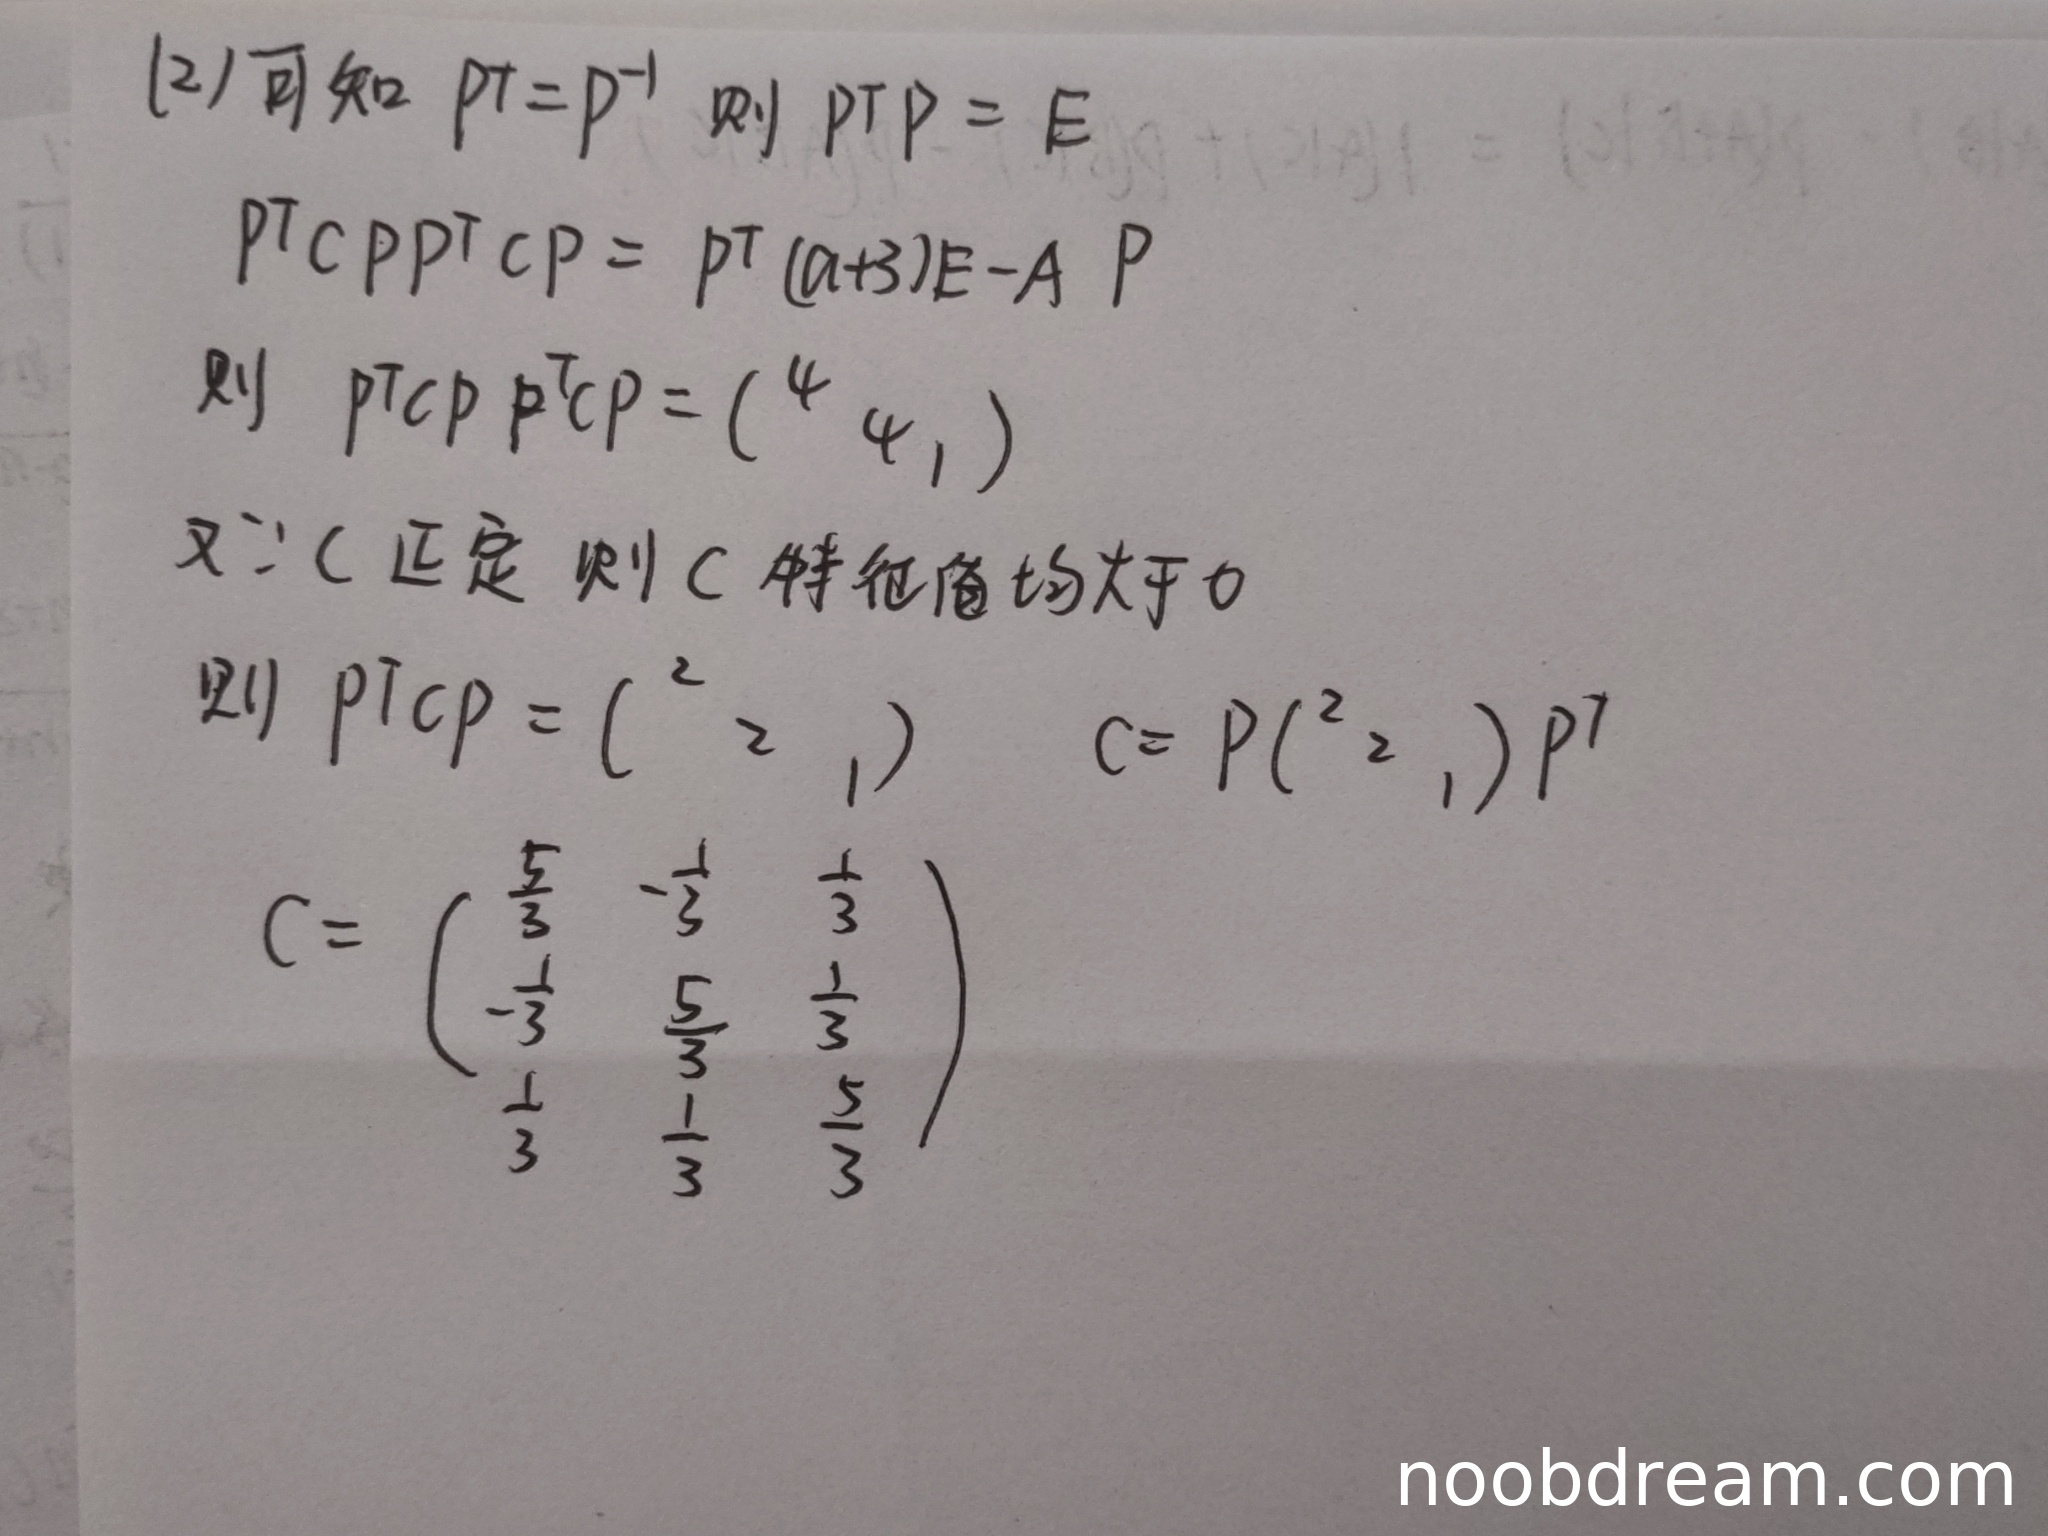 (2) 可知 Pᵀ=P⁻¹ 则 PᵀP = E
PᵀCPPᵀCP = Pᵀ (a+3)E-A P
则 PᵀCP PᵀCP = ( 4 4 1 )
又∵ C 正定 则 C 特征值均大于0
则 PᵀCP = ( 2 2 1 ) C= P( 2 2 1 ) Pᵀ
C= ( 5/3 -1/3 1/3
-1/3 5/3 1/3
1/3 1/3 5/3 )
noobdream.com